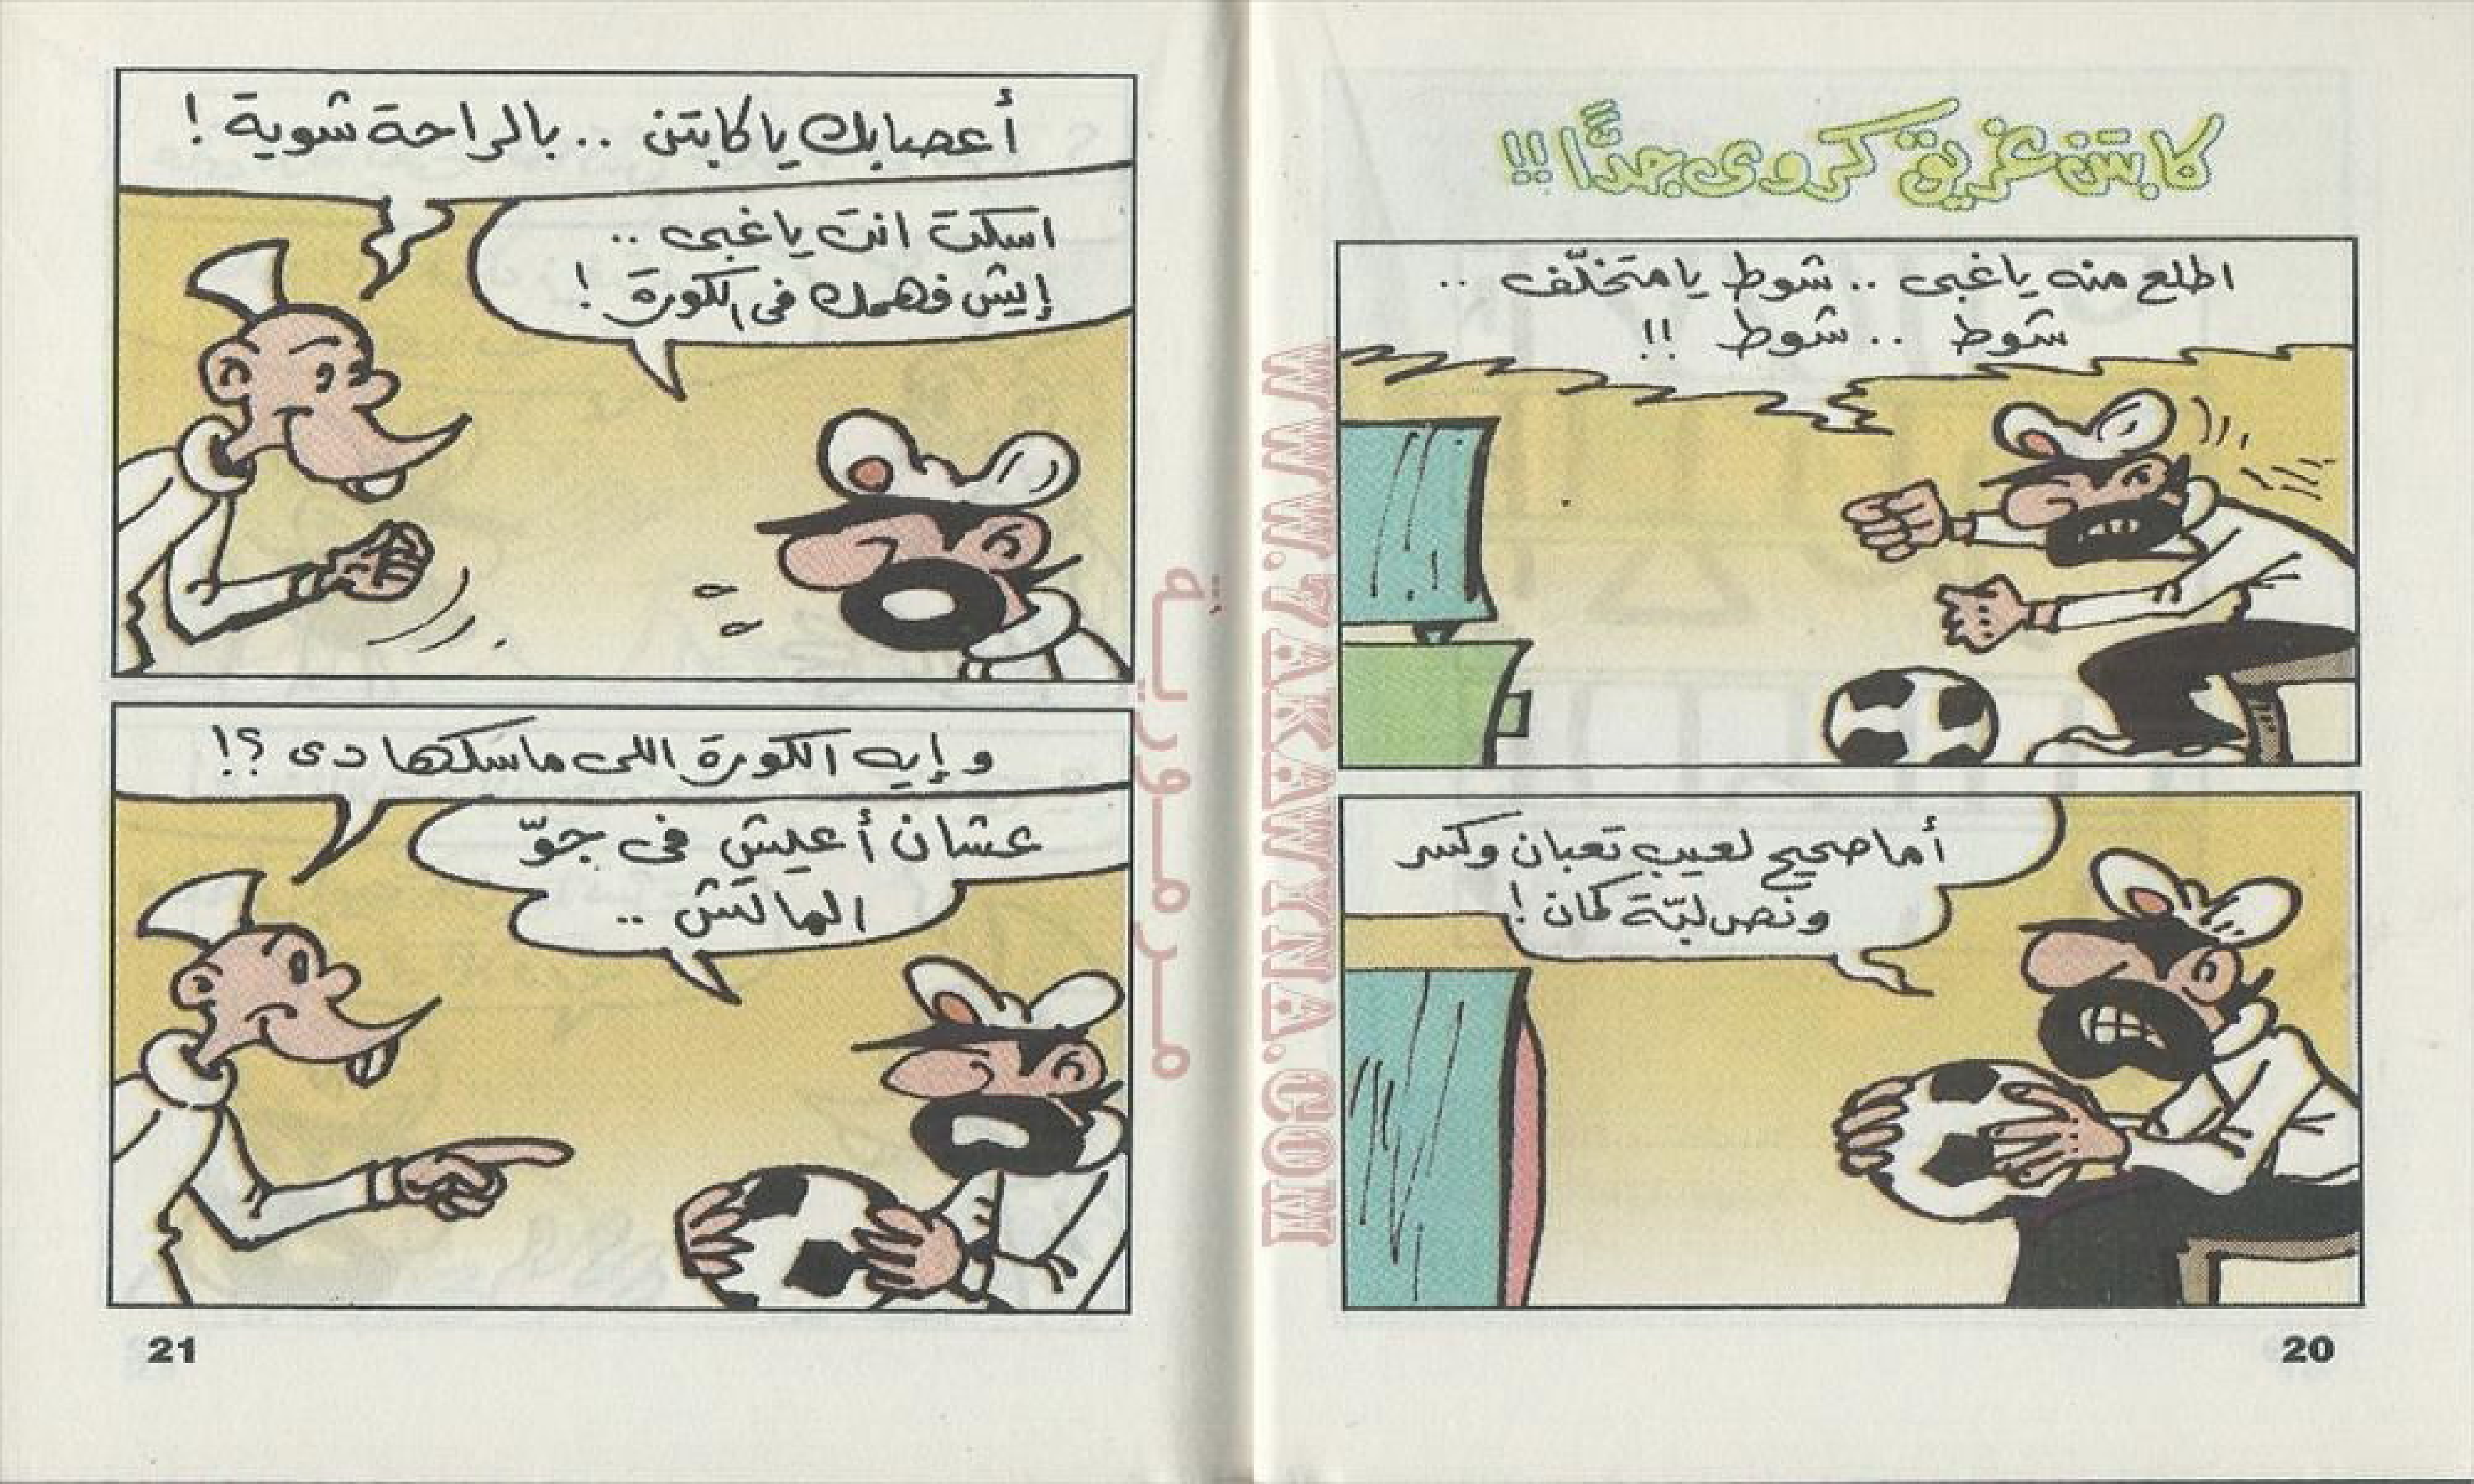 كابتن غريق كروى جدًّا !!
اطلع منه ياغبى .. شوط يامتخلّف ..
شوط .. شوط !!
أما صحيح لعيب تعبان وكسر
ونص لبّة كمان !
20
أعصابك ياكابتن .. بالراحة شوية !
اسكت انت ياغبى ..
إيش فهمك فى الكورة !
وإيه الكورة اللى ماسكها دى ؟!
عشان أعيش فى جوّ
الماتش ..
21
مرمورية
WWW.7AKAWYNA.COM